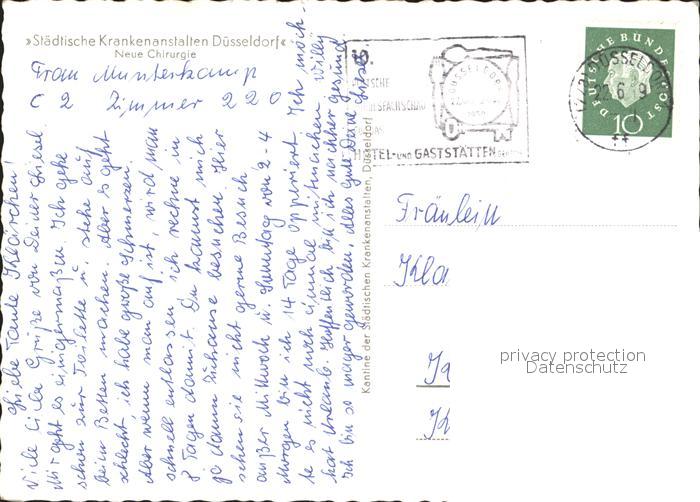 »Städtische Krankenanstalten Düsseldorf«
Neue Chirurgie
Frau Munterkamp
C 2 Zimmer 220
Liebe Tante Klärchen!
Viele liebe Grüße von Deiner Liesel.
Mir geht es einigermaßen. Ich gehe
schon zur Toilette u. stehe auf
beim Betten machen. Aber es geht
schlecht, ich habe große Schmerzen.
Aber wenn man auf ist, wird man
schnell entlassen, ich rechne in
8 Tagen damit. Du kannst mich
ja dann Zuhause besuchen. Hier
sehen sie nicht gerne Besuch
außer Mittwoch u. Sonntag von 2-4
Morgen bin ich 14 Tage operiert. Ich möch-
te es nicht noch einmal mitmachen. Willi
hat Urlaub. Hoffentlich bin ich nachher gesund
Ich bin so mager geworden, Alles gute Deine Liesel
Kantine der Städtischen Krankenanstalten, Düsseldorf
DÜSSELDORF
HOTEL- UND GASTSTÄTTEN
DEUTSCHE BUNDESPOST
10
DÜSSELDORF
Fräulein
Kla
privacy protection
Datenschutz